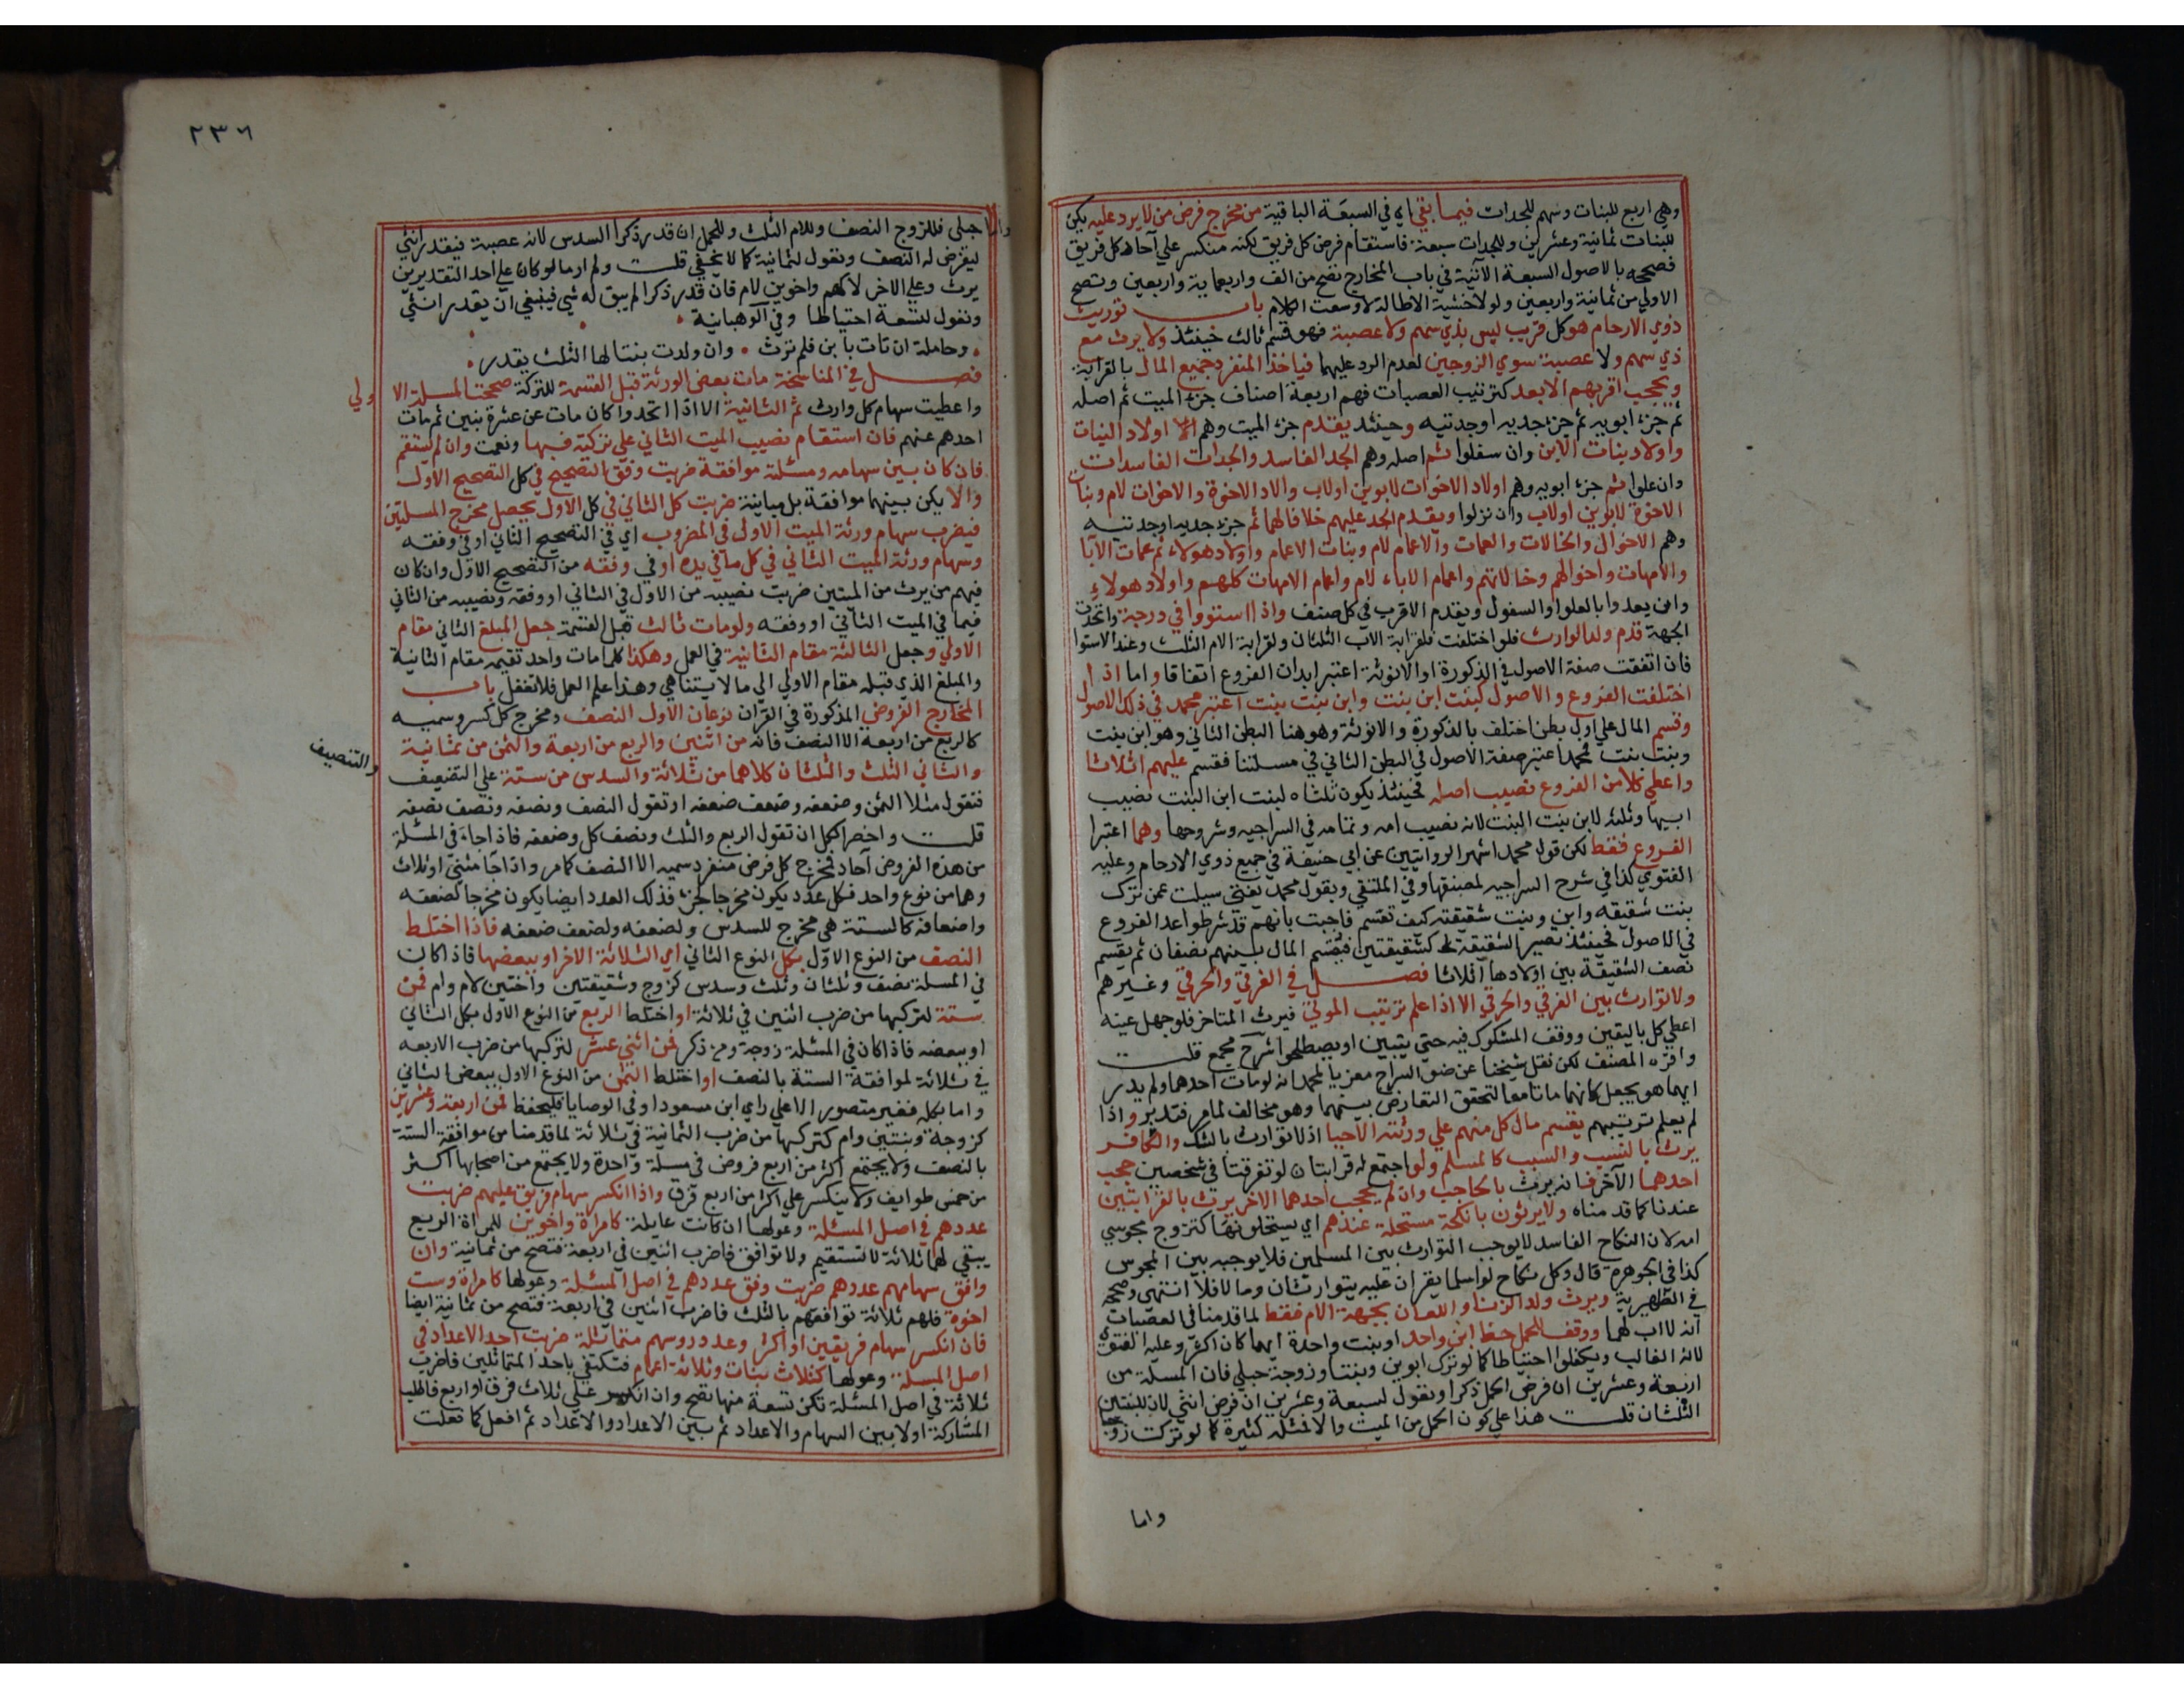 وهي اربع للبنات وسهم للجدات فيما بقي اي في السبعة الباقية من مخرج فرض من لا يرد عليه يكن
للبنات ثمانية وعشرين وللجدات سبعة فاستقام فرض كل فريق لكنه منكسر علي آحاد كل فريق
فصححه بالاصول السبعة الآتية في باب المخارج تصح من الف واربعماية واربعين وتصح
الاولي من ثمانية واربعين ولولا خشية الاطالة لاوسعت الكلام باب توريث
ذوي الارحام هو كل قريب ليس بذي سهم ولا عصبة فهو قسم ثالث حينئذ ولا يرث مع
ذي سهم ولا عصبة سوي الزوجين لعدم الرد عليهما فياخذ المنفرد جميع المال بالقرابة
ويحجب اقربهم الابعد كترتيب العصبات فهم اربعة اصناف جزء الميت ثم اصله
ثم جزء ابويه ثم جزء جديه او جدتيه وحينئذ يقدم جزء الميت وهم اولاد البنات
واولاد بنات الابن وان سفلوا ثم اصله وهم الجد الفاسد والجدات الفاسدات
وان علوا ثم جزء ابويه وهم اولاد الاخوات لابوين اولاب والاد الاخوة والاخوات لام وبنات
الاخوة لابوين اولاب وان نزلوا ويقدم الجد عليهم خلافا لهما ثم جزء جديه او جدتيه
وهم الاخوال والخالات والعمات والاعمام لام وبنات الاعمام واولاد هولاء ثم عمات الآبا
والامهات واخوالهم وخالاتهم واعمام الاباء لام واعمام الامهات كلهم واولاد هولاء
وان بعدوا بالعلو او السفول ويقدم الاقرب في كل صنف واذا استووا في درجة واتحدت
الجهة قدم ولد الوارث فلو اختلفت فلقرابة الاب الثلثان ولقرابة الام الثلث وعند الاستوا
فان اتفقت صفة الاصول في الذكورة او الانوثة اعتبر ابدان الفروع اتفاقا واما اذا
اختلفت الفروع والاصول كبنت ابن بنت وابن بنت بنت اعتبر محمد في ذلك الاصول
وقسم المال علي اول بطن اختلف بالذكورة والانوثة وهو هنا البطن الثاني وهو ابن بنت
وبنت بنت محمدا اعتبر صفة الاصول في البطن الثاني في مسئلتنا فقسم عليهم اثلاثا
واعطي كلا من الفروع نصيب اصله فحينئذ يكون ثلثاه لبنت ابن البنت نصيب
ابيها وثلثه لابن بنت البنت لانه نصيب امه وتمامه في السراجيه وشروحها وهما اعتبرا
الفروع فقط لكن قول محمد اشهر الروايتين عن ابي حنيفة في جميع ذوي الارحام وعليه
الفتوي كذا في شرح السراجيه لمصنفها وفي الملتقي وبقول محمد يفتي سيلت عمن ترك
بنت شقيقه وابن وبنت شقيقته كيف تقسم فاجبت بانهم قد شرطوا عد الفروع
في الاصول فحينئذ تصير الشقيقة كشقيقتين فيقسم المال بينهم نصفان ثم يقسم
نصف الشقيقة بين اولادها اثلاثا فصل في الغرقي والحرقي وغيرهم
ولا توارث بين الغرقي والحرقي الا اذا علم ترتيب الموتي فيرث المتاخر فلو جهل عينه
اعطي كل باليقين ووقف المشكوك فيه حتي يتبين او يصطلحوا شرح مجمع قلت
واقره المصنف لكن نقل شيخنا عن ضوء السراج معزيا لمحمد انه لو مات احدهما ولم يدر
ايهما هو يجعل كانهما ماتا معا لتحقق التعارض بينهما وهو مخالف لما مر فتدبر واذا
لم يعلم ترتيبهم يقسم مال كل منهم علي ورثته الاحيا اذ لا توارث بالشك والكافر
يرث بالنسب والسبب كالمسلم ولو اجتمع له قرابتان لو تفرقتا في شخصين حجب
احدهما الآخر فانه يرث بالحاجب وان لم يحجب احدهما الاخر يرث بالقرابتين
عندنا كما قدمناه ولا يرثون بانكحة مستحلة عندهم اي يستحلونها كتزوج مجوسي
امه لان النكاح الفاسد لا يوجب التوارث بين المسلمين فلا يوجبه بين المجوس
كذا في الجوهرة قال وكل نكاح لو اسلما يقران عليه يتوارثان وما لا فلا انتهي وصححه
في الظهيرية ويرث ولد الزنا واللعان بجهة الام فقط لما قدمنا في العصبات
انه لا اب لهما ووقف للحمل حظ ابن واحد او بنت واحدة ايهما كان اكثر وعليه الفتوي
لانه الغالب ويكفلوا احتياطا كما لو ترك ابوين وبنتا وزوجة حبلي فان المسئلة من
اربعة وعشرين ان فرض الحمل ذكرا وتعول لسبعة وعشرين ان فرض انثي لان للبنتين
الثلثان قلت هذا علي كون الحمل من الميت والا فمثله كثيرة كما لو تركت زوجا
واما
٢٣٦
واما حبلي فللزوج النصف وللام الثلث وللحمل ان قدر ذكرا السدس لانه عصبة فيقدر انثي
ليفرض له النصف وتعول لثمانية كما لا يخفي قلت ولم ار ما لو كان علي احد التقديرين
يرث وعلي الاخر لا كهم واخوين لام فان قدر ذكرا لم يبق له شي فينبغي ان يقدر انثي
وتعول لتسعة احتياطا وفي الوهبانية
وحاملة ان تات بابن فلم ترث وان ولدت بنتا لها الثلث يقدر
فصل في المناسخة مات بعض الورثة قبل القسمة للتركة صححت المسئلة الا ولي
واعطيت سهام كل وارث ثم الثانية الا اذا اتحدوا كان مات عن عشرة بنين ثم مات
احدهم عنهم فان استقام نصيب الميت الثاني علي تركته فبها ونعمت وان لم يستقم
فان كان بين سهامه ومسئلته موافقة ضربت وفق التصحيح في كل التصحيح الاول
والا يكن بينهما موافقة بل مباينة ضربت كل الثاني في كل الاول يحصل مخرج المسلتين
فيضرب سهام ورثة الميت الاول في المضروب اي في التصحيح الثاني او في وفقه
وسهام ورثة الميت الثاني في كل ما في يده او في وفقه من التصحيح الاول وان كان
فيهم من يرث من الميتين ضربت نصيبه من الاول في الثاني او وفقه ونصيبه من الثاني
فيما في الميت الثاني او وفقه ولو مات ثالث قبل القسمة جعل المبلغ الثاني مقام
الاولي وجعل الثالثة مقام الثانية في العمل وهكذا كلما مات واحد تقيمه مقام الثانية
والمبلغ الذي قبله مقام الاولي الي ما لا يتناهي وهذا علم العمل فلا تغفل باب
المخارج الفروض المذكورة في القران نوعان الاول النصف ومخرج كل كسر سميه
كالربع من اربعة الا النصف فانه من اثنين والربع من اربعة والثمن من ثمانية
والثاني الثلث والثلثان كلاهما من ثلاثة والسدس من ستة علي التضعيف والتنصيف
فتقول مثلا الثمن وضعفه وضعف ضعفه او تقول النصف ونصفه ونصف نصفه
قلت واخصر الكل ان تقول الربع والثلث ونصف كل وضعفه فاذا جاء في المسئلة
من هذه الفروض آحاد فمخرج كل فرض منفرد سميه الا النصف كما مر واذا جا مثني او ثلاث
وهما من نوع واحد فكل عدد يكون مخرجا لجزء فذلك العدد ايضا يكون مخرجا لضعفه
واضعافه كالستة هي مخرج للسدس ولضعفه ولضعف ضعفه فاذا اختلط
النصف من النوع الاول بكل النوع الثاني اي الثلاثة الاخر او ببعضها فاذا كان
في المسئلة نصف وثلثان وثلث وسدس كزوج وشقيقتين واختين لام وام فمن
ستة لتركبها من ضرب اثنين في ثلاثة او اختلط الربع من النوع الاول بكل الثاني
او ببعضه فاذا كان في المسئلة زوجة ومن ذكر فمن اثني عشر لتركبها من ضرب الاربعه
في ثلاثة لموافقة الستة بالنصف او اختلط الثمن من النوع الاول ببعض الثاني
واما بكله فغير متصور الا علي راي ابن مسعود او في الوصايا فليحفظ فمن اربعة وعشرين
كزوجة وبنتين وام كتركبها من ضرب الثمانية في ثلاثة لما قدمنا من موافقة الستة
بالنصف ولا يجتمع اكثر من اربع فروض في مسئلة واحدة ولا يجتمع من اصحابها اكثر
من خمس طوايف ولا ينكسر علي اكثر من اربع فرق واذا انكسر سهام فريق عليهم ضربت
عددهم في اصل المسئلة وعولها ان كانت عايلة كامراة واخوين للمراة الربع
يبقي لهما ثلاثة لا تستقيم ولا توافق فاضرب اثنين في اربعة فتصح من ثمانية وان
وافق سهامهم عددهم ضربت وفق عددهم في اصل المسئلة وعولها كامراة وست
اخوة فلهم ثلاثة توافقهم بالثلث فاضرب اثنين في اربعة فتصح من ثمانية ايضا
فان انكسر سهام فريقين او اكثر وعدد روسهم متماثلة ضربت احد الاعداد في
اصل المسئلة وعولها كثلاث بنات وثلاثة اعمام فتكتفي باحد المتماثلين فاضرب
ثلاثة في اصل المسئلة تكن تسعة منها تصح وان انكسر علي ثلاث فرق او اربع فاطلب
المشاركة اولا بين السهام والاعداد ثم بين الاعداد والاعداد ثم افعل كما فعلت